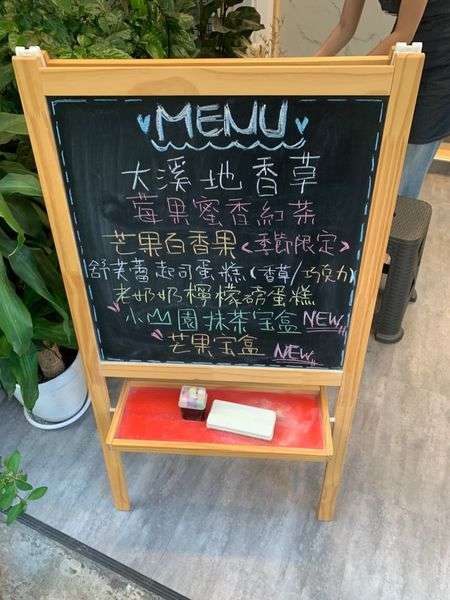 MENU
大溪地香草
莓果蜜香紅茶
芒果百香果<季節限定>
舒芙蕾起司蛋糕(香草/巧克力)
老奶奶檸檬磅蛋糕
小山園抹茶宝盒 NEW
芒果宝盒 NEW